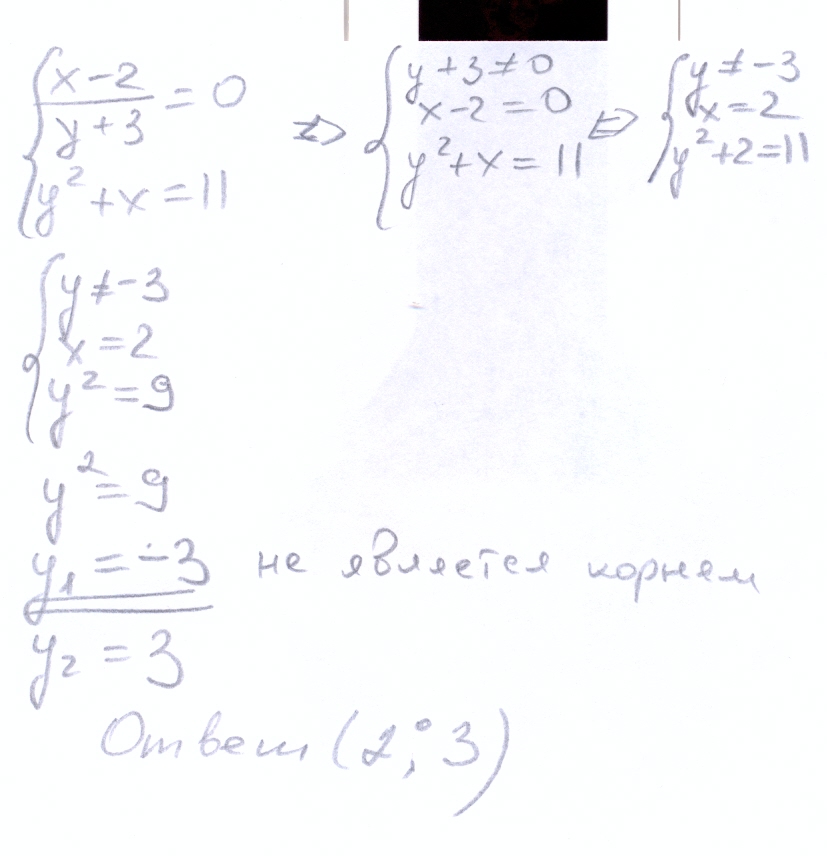 { (x-2)/(y+3) = 0 ⇔ { y+3≠0 ⇔ { y≠-3
x-2=0 x=2
y²+x=11 y²+x=11 y²+2=11
{ y≠-3
x=2
y²=9
y²=9
y₁=-3 не является корнем
y₂=3
Ответ (2; 3)